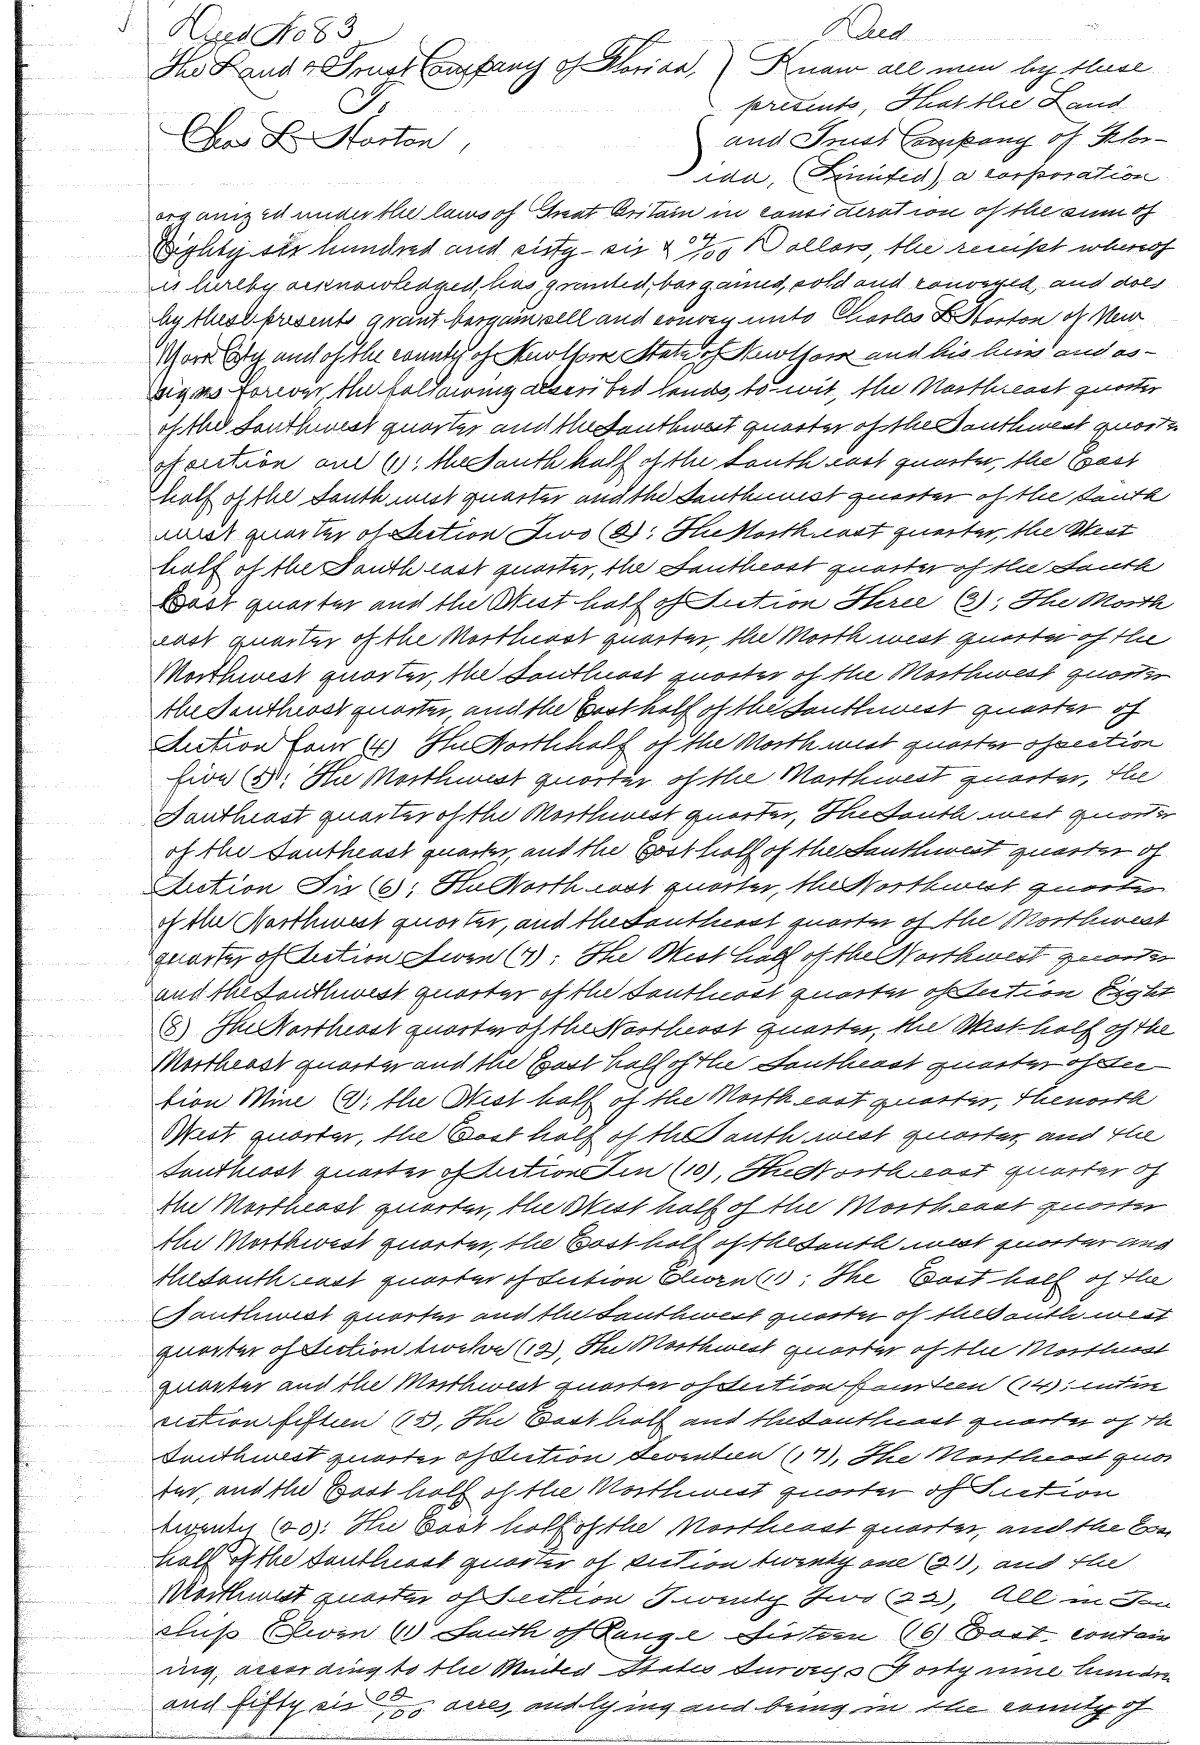 Deed No 83 Deed
The Land & Trust Company of Florida, Know all men by these
To presents, That the Land
Chas L Horton, and Trust Company of Flor-
ida, (Limited) a corporation
organized under the laws of Great Britain in consideration of the sum of
Eighty six hundred and sixty-six & 04/100 Dollars, the receipt whereof
is hereby acknowledged, has, granted, bargained, sold and conveyed, and does
by these presents grant bargain, sell and convey unto Charles L Horton of New
York City and of the county of New York State of New York and his heirs and as-
signs forever, the following described lands, to-wit, the Northeast quarter
of the Southwest quarter and the Southwest quarter of the Southwest quarter
of section one (1): the South half of the South east quarter, the East
half of the South west quarter and the Southwest quarter of the South
west quarter of Section Two (2): The North east quarter, the West
half of the South east quarter, the Southeast quarter of the South
East quarter and the West half of Section Three (3); The North
east quarter of the Northeast quarter, the North west quarter of the
Northwest quarter, the Southeast quarter of the Northwest quarter
the Southeast quarter, and the East half of the Southwest quarter of
Section four (4) The North half of the North west quarter of section
five (5): The Northwest quarter of the Northwest quarter, the
Southeast quarter of the Northwest quarter, The South west quarter
of the Southeast quarter, and the East half of the Southwest quarter of
Section Six (6); The North east quarter, the Northwest quarter
of the Northwest quarter, and the Southeast quarter of the Northwest
quarter of Section Seven (7): The West half of the Northwest quarter
and the Southwest quarter of the Southeast quarter of Section Eight
(8) The Northeast quarter of the Northeast quarter, the West half of the
Northeast quarter and the East half of the Southeast quarter of Sec-
tion Nine (9); the West half of the North east quarter, the north
West quarter, the East half of the South west quarter, and the
Southeast quarter of Section Ten (10), The North east quarter of
the Northeast quarter, the West half of the Northeast quarter
the Northwest quarter, the East half of the South west quarter and
the South east quarter of Section Eleven (11): The East half of the
Southwest quarter and the Southwest quarter of the South west
quarter of Section twelve (12), The Northwest quarter of the Northeast
quarter and the Northwest quarter of Section fourteen (14); entire
section fifteen (15), The East half and the Southeast quarter of th
Southwest quarter of Section Seventeen (17), The Northeast quar
ter, and the East half of the Northwest quarter of Section
twenty (20): The East half of the Northeast quarter, and the Eas
half of the Southeast quarter of section twenty one (21), and the
Northwest quarter of Section Twenty Two (22), All in Tow
ship Eleven (11) South of Range Sixteen (16) East, contain
ing, according to the United States Surveys Forty nine hundre
and fifty six acres, and lying and being in the county of